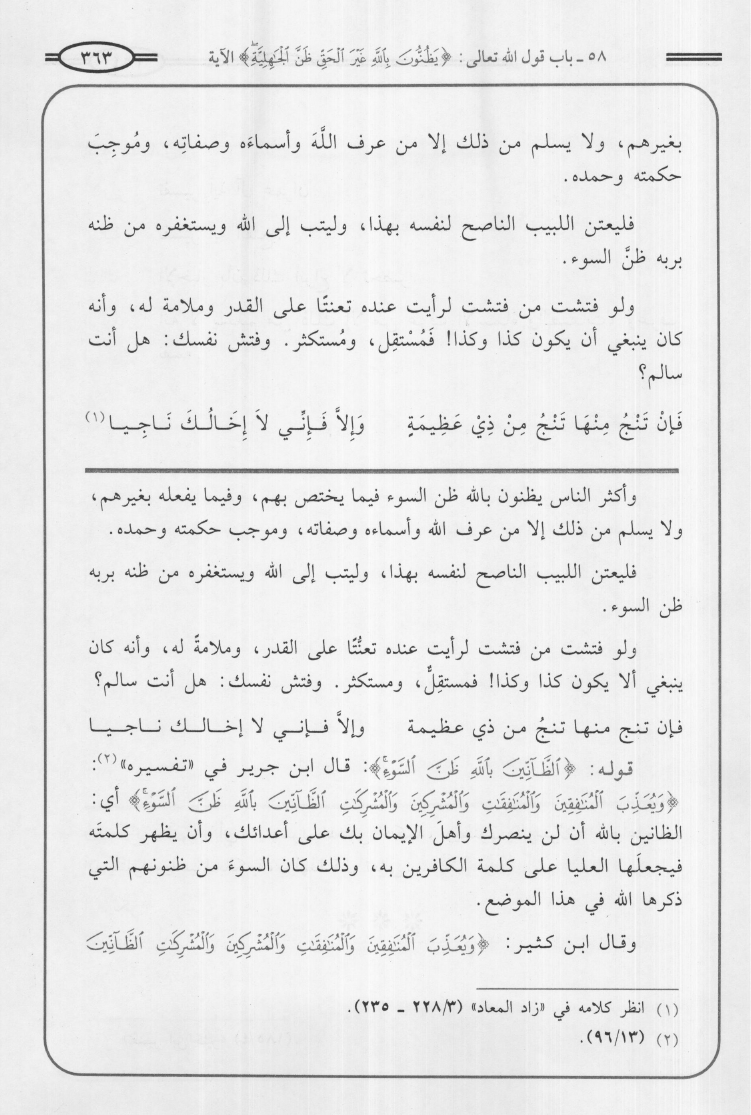 ٥٨ ـ باب قول الله تعالى: ﴿يَظُنُّونَ بِاللَّهِ غَيْرَ الْحَقِّ ظَنَّ الْجَاهِلِيَّةِ﴾ الآية ٣٦٣
بغيرهم، ولا يسلم من ذلك إلا من عرف اللَّهَ وأسماءَه وصفاتِه، ومُوجِبَ
حكمته وحمده.
فليعتن اللبيب الناصح لنفسه بهذا، وليتب إلى الله ويستغفره من ظنه
بربه ظنَّ السوء.
ولو فتشت من فتشت لرأيت عنده تعنتًا على القدر وملامة له، وأنه
كان ينبغي أن يكون كذا وكذا! فَمُسْتَقِل، ومُستكثر. وفتش نفسك: هل أنت
سالم؟
فَإِنْ تَنْجُ مِنْهَا تَنْجُ مِنْ ذِيْ عَظِيمَةٍ وَإِلاَّ فَإِنِّي لاَ إِخَالُكَ نَاجِيا(١)
وأكثر الناس يظنون بالله ظن السوء فيما يختص بهم، وفيما يفعله بغيرهم،
ولا يسلم من ذلك إلا من عرف الله وأسماءه وصفاته، وموجب حكمته وحمده.
فليعتن اللبيب الناصح لنفسه بهذا، وليتب إلى الله ويستغفره من ظنه بربه
ظن السوء.
ولو فتشت من فتشت لرأيت عنده تعنُّتًا على القدر، وملامةً له، وأنه كان
ينبغي ألا يكون كذا وكذا! فمستقِلٌّ، ومستكثر. وفتش نفسك: هل أنت سالم؟
فإن تنج منها تنجُ من ذي عظيمة وإلاَّ فإني لا إخالك ناجيا
قوله: ﴿الظَّانِّينَ بِاللَّهِ ظَنَّ السَّوْءِ﴾: قال ابن جرير في «تفسيره»(٢):
﴿وَيُعَذِّبَ الْمُنَافِقِينَ وَالْمُنَافِقَاتِ وَالْمُشْرِكِينَ وَالْمُشْرِكَاتِ الظَّانِّينَ بِاللَّهِ ظَنَّ السَّوْءِ﴾ أي:
الظانين بالله أن لن ينصرك وأهلَ الإيمان بك على أعدائك، وأن يظهر كلمتَه
فيجعلَها العليا على كلمة الكافرين به، وذلك كان السوءَ من ظنونهم التي
ذكرها الله في هذا الموضع.
وقال ابن كثير: ﴿وَيُعَذِّبَ الْمُنَافِقِينَ وَالْمُنَافِقَاتِ وَالْمُشْرِكِينَ وَالْمُشْرِكَاتِ الظَّانِّينَ
(١) انظر كلامه في «زاد المعاد» (٢٢٨/٣ ـ ٢٣٥).
(٢) (٩٦/١٣).